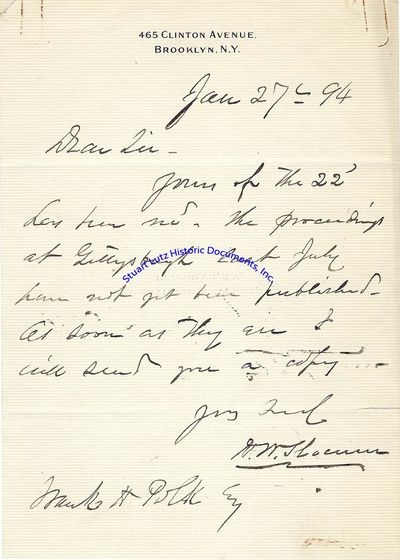 465 CLINTON AVENUE.
BROOKLYN, N.Y.
Jan 27th 94
Dear Sir -
Yours of the 22d
has been recd. The proceedings
at Gettysburgh last July
have not yet been published -
As soon as they are I
will send you a copy -
Yours Truly
H.W. Slocum
Frank H Polk Esq
Stuart Lutz Historic Documents, Inc.